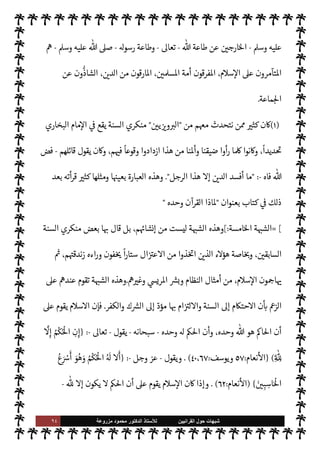 عليه وسلم - الخارجين عن طاعة الله - تعالى - وطاعة رسوله - صلى الله عليه وسلم - هم
المتآمرون على الإسلام، المفرقون أمة المسلمين، المارقون من الدين، الشاذُّون عن
الجماعة.
(١)كان كثير ممن نتحدث معهم من "البرويزيين" منكري السنة يقع في الإمام البخاري
تحديداً، وكانوا كلما رأوا ضيقنا وألمنا من هذا ازدادوا وقوعاً فيهم، وكان يقول قائلهم - فض
الله فاه -: "ما أفسد الدين إلا هذا الرجل". وهذه العبارة بعينها ومثلها كثير قرأته بعد
ذلك في كتاب بعنوان "لماذا القرآن وحده "
{ =الشبهة الخامسة:}وهذه الشبهة ليست من إنشائهم، بل قال بها بعض منكري السنة
السابقين، وبخاصة هؤلاء الذين اتخذوا من الاعتزال ستاراً يخفون وراءه زندقتهم، ثم
يهاجمون الإسلام، من أمثال النظام وبشر المريسي وغيرهم.وهذه الشبهة تقوم عندهم على
الزعم بأن الاحتكام إلى السنة والالتزام بها مؤدٍ إلى الشرك والكفر. فإن الاسلام يقوم على
أن الحاكم هو الله وحده، وأن الحكم له وحده - سبحانه - يقول - تعالى -: {إِنِ الْحُكْمُ إِلَّا
لِلَّهِ} (الأنعام:٥٧ ويوسف:٤٠،٦٧) . ويقول - عز وجل -: {أَلَا لَهُ الْحُكْمُ وَهُوَ أَسْرَعُ
الْحَاسِبِينَ} (الأنعام:٦٢) . وإذا كان الإسلام يقوم على أن الحكم لا يكون إلا لله -
شبهات حول القرآنيين للأستاذ الدكتور محمود مزروعة ٦٤